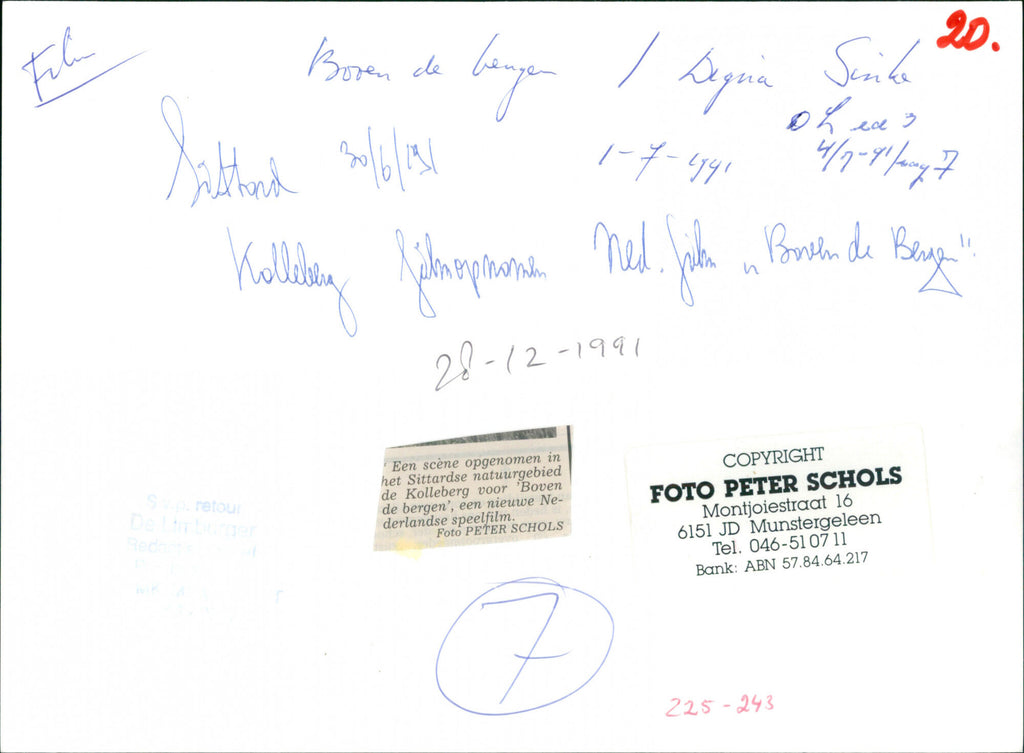 20.
Film
Boven de bergen / Digna Sinke
Sittard 30/6/'91
1-7-1991
4/7-91/ 7
Kolleberg filmopnamen Ned. film „Boven de Bergen".
28-12-1991
Een scène opgenomen in
het Sittardse natuurgebied
de Kolleberg voor 'Boven
de bergen', een nieuwe Ne-
derlandse speelfilm.
Foto PETER SCHOLS
COPYRIGHT
FOTO PETER SCHOLS
Montjoiestraat 16
6151 JD Munstergeleen
Tel. 046-510711
Bank: ABN 57.84.64.217
S.v.p. retour
De Limburger
7
225-243